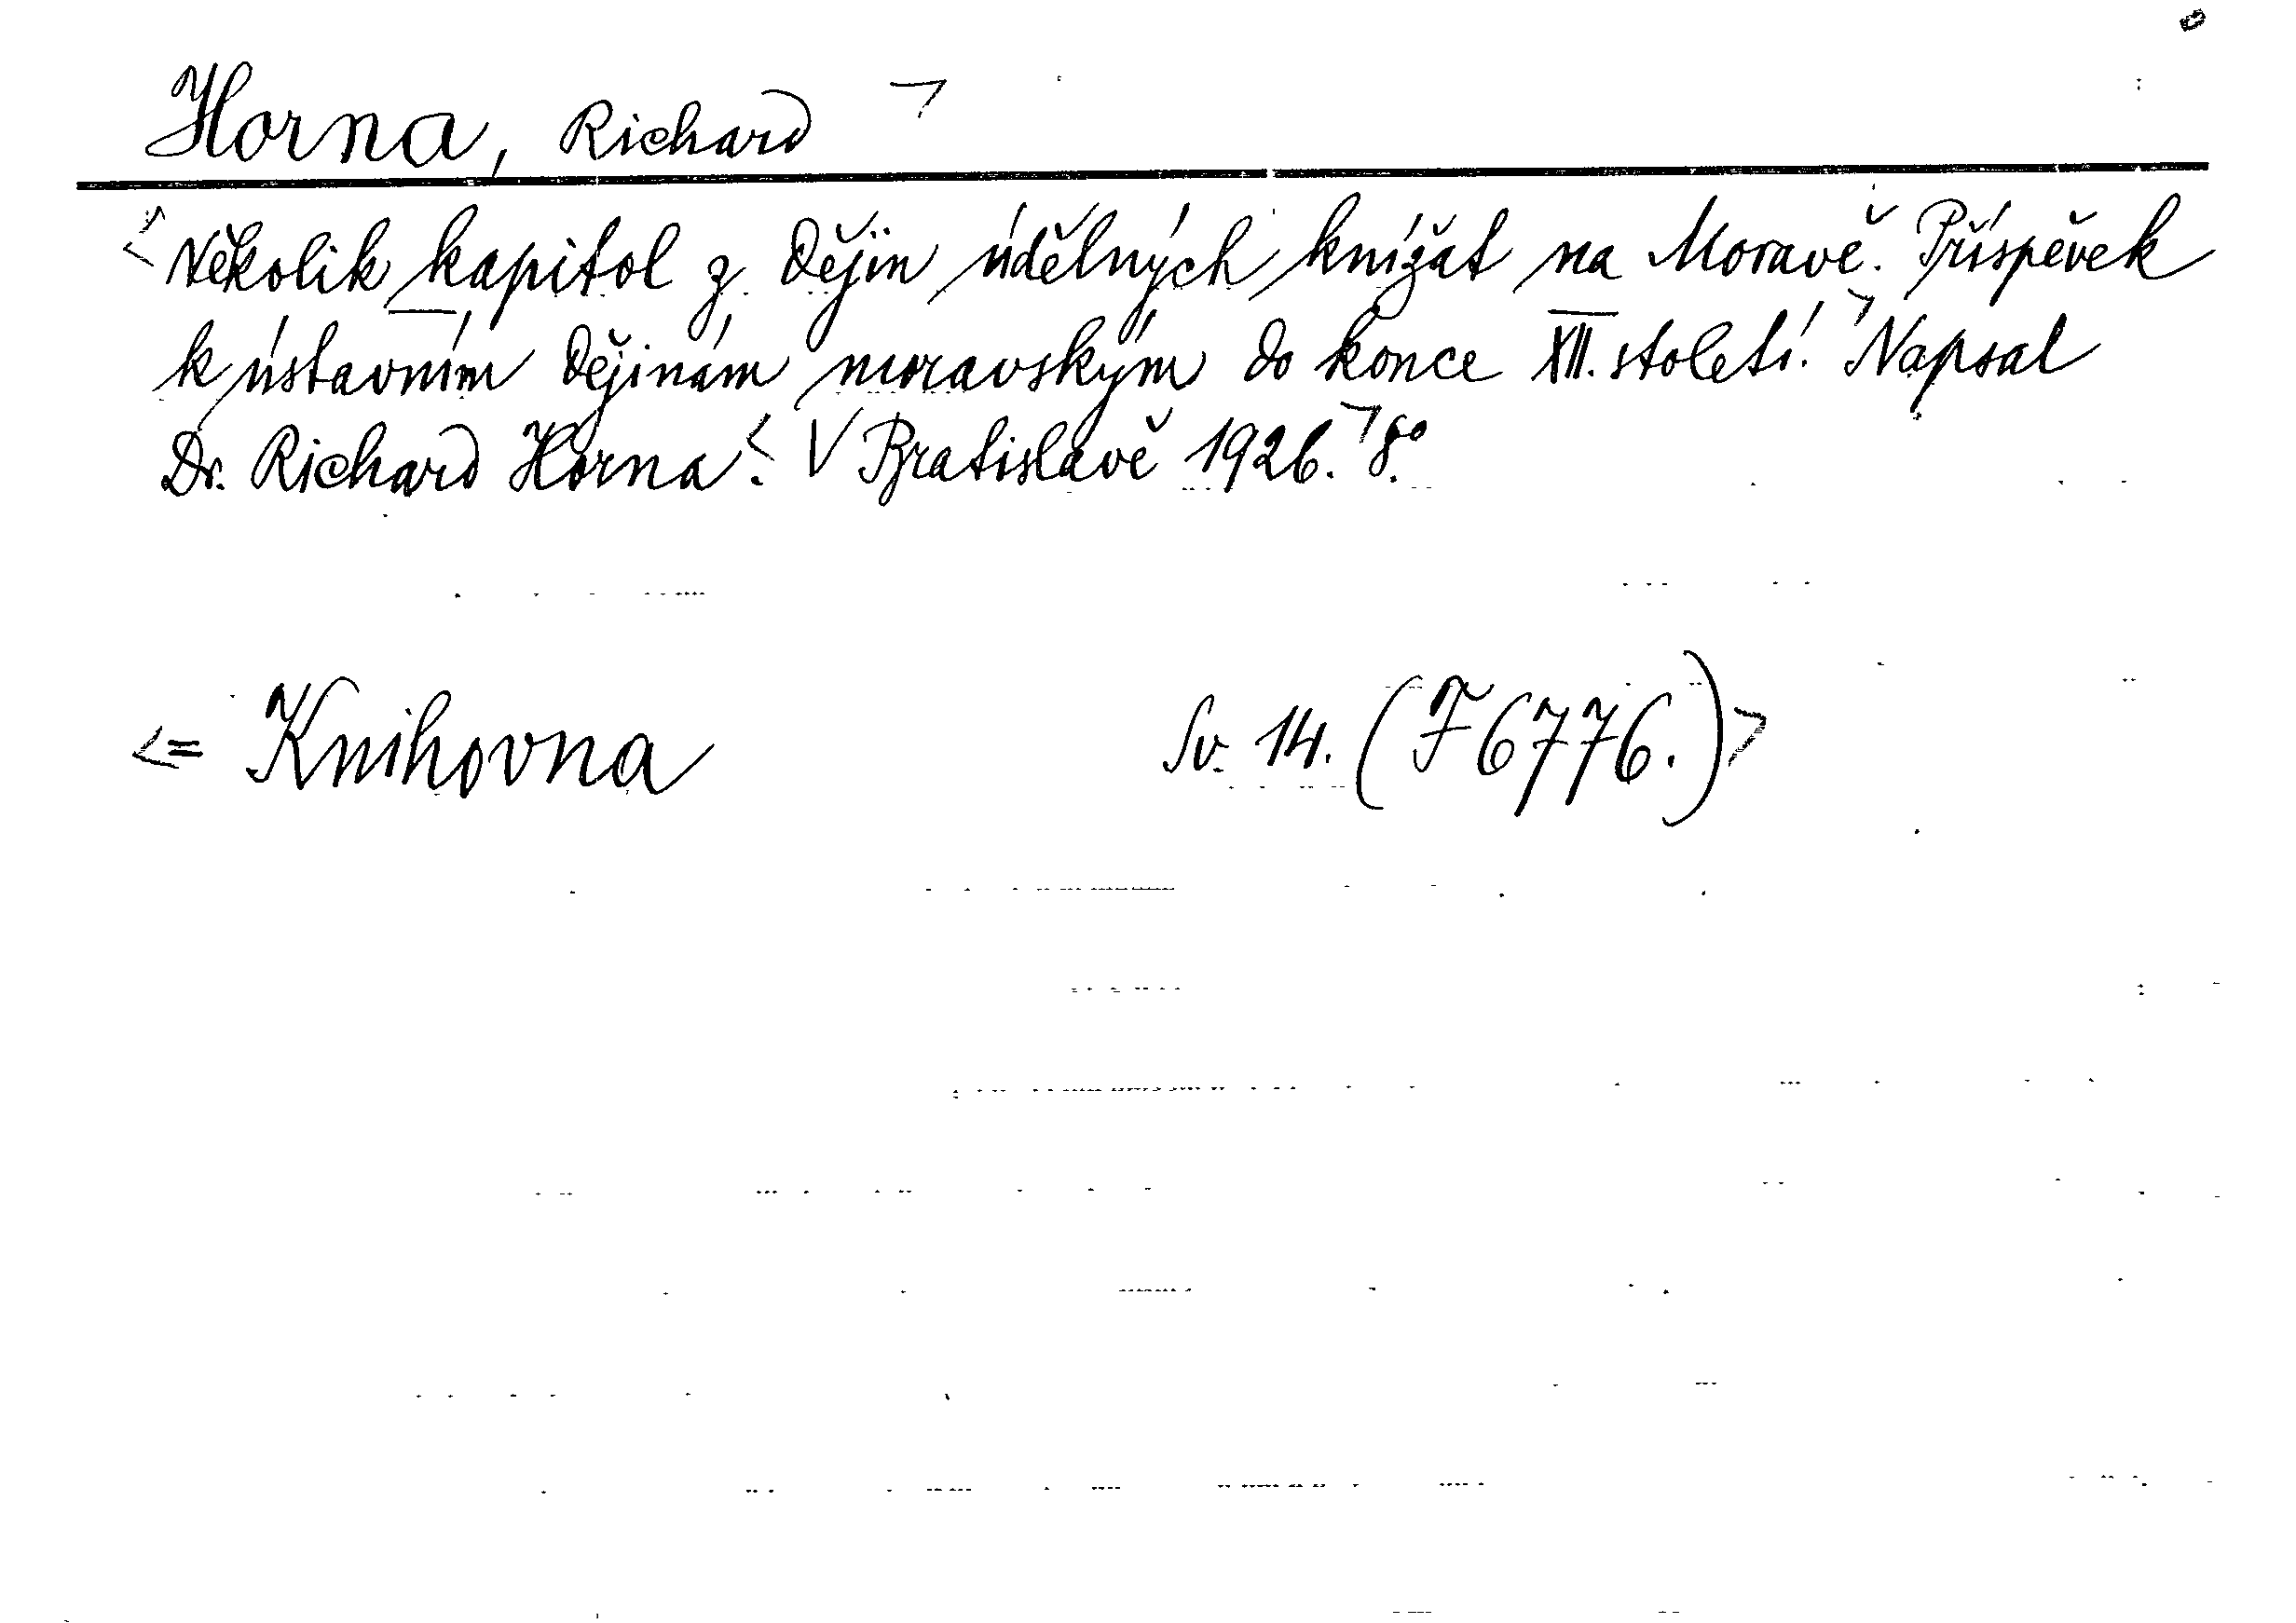 Horna, Richard ¬
<Několik kapitol z dějin údělných knížat na Moravě. Příspěvek
k ústavním dějinám moravským do konce XII. století.¬ Napsal
Dr. Richard Horna.< V Bratislavě 1926.¬ 8°.
<= Knihovna Sv. 14. (F 6776.)>